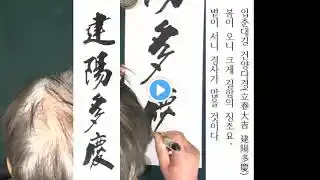 입춘대길 건양다경(立春大吉 建陽多慶)
봄이 오니 크게 길함의 징조요,
볕이 서니 경사가 많을 것이다
多慶
建陽多慶